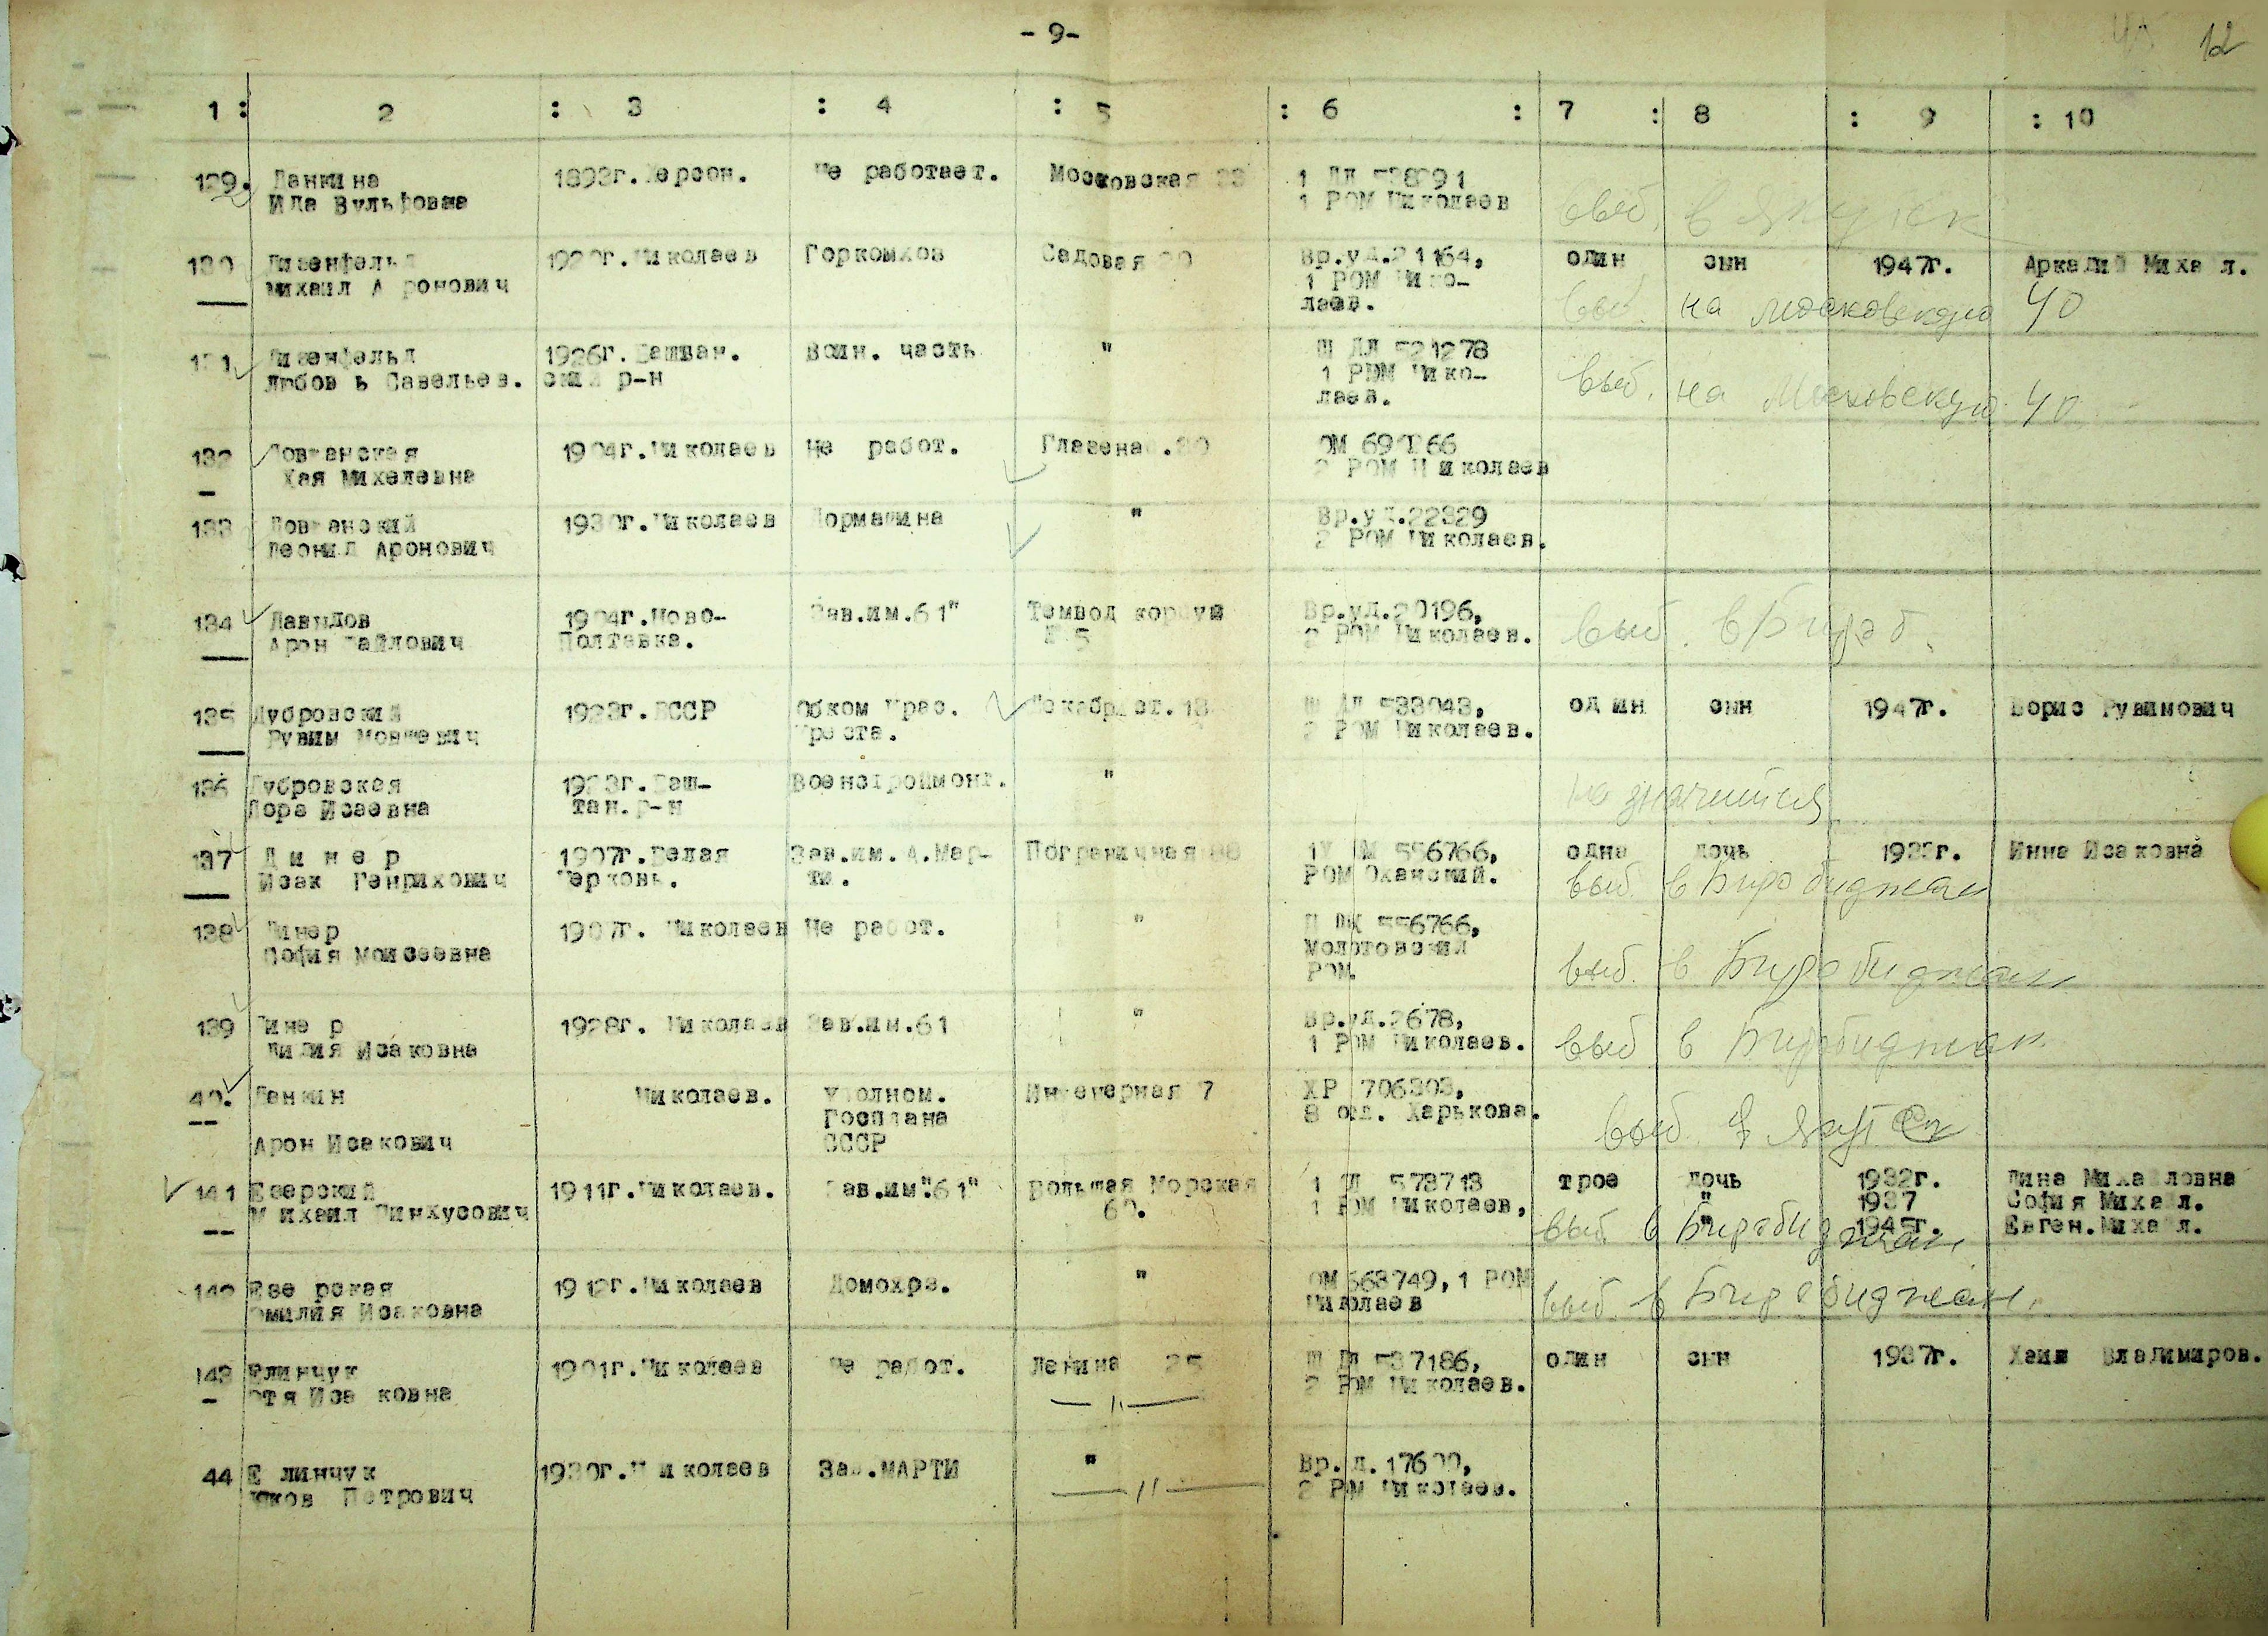 - 9-
12
1 : 2 : 3 : 4 : 5 : 6 : 7 : 8 : 9 : 10
129. Данкина 1893г.Херсон. Не работает. Московская 1 ДЛ
Ида Вульфовна 1 РОМ Николаев
выб. в
130 Лизенфельд Николаев Горкомхоз Садовая Вр.уд.21164, один сын 1947г. Аркадий Михайл.
Михаил Аронович 1 РОМ Нико-
лаев. выб. на Московскую 40
131 Лизенфельд 1926г.Баштан. Воин. часть " Ш ДЛ 521278
Любовь Савельев. ский р-н 1 РОМ Нико-
лаев. выб. на Московскую 40
132 Довганская 1904г.Николаев Не работ. Глазенап. ОМ
Хая Михелевна 2 РОМ Николаев
133 Довганский 1930г.Николаев Нормашина " Вр.уд.22329
Леонид Аронович 2 РОМ Николаев.
134 Давыдов 1904г.Ново- Зав.им.61" Темвод корпус Вр.уд.20196,
Арон Полтавка. № 5 2 РОМ Николаев.
выб. в Бироб.
135 Дубровский 1923г.БССР Обком Крас. Декабрист. Ш ДЛ 533043, один сын 1947г. Борис Рувимович
Рувим Мовшевич Креста. 2 РОМ Николаев.
136 Дубровская 1923г.Баш- Военстроймонт. "
Дора Исаевна тан.р-н не значится
137 Д и н е р 1907г.Белая Зав.им.А.Мар- Пограничная 1У 556766, одна дочь Инна Исаковна
Исак Генрихович Церковь. ти. РОМ Оханский.
выб. в Биробиджан
138 Динер 1907г. Николаев Не работ. " П 556766,
София Моисеевна Молотовский
РОМ.
выб. в Биробиджан
139 Динер 1928г. Николаев Зав.им.61 " Вр.уд.2678,
Лилия Исаковна 1 РОМ Николаев.
выб в Биробиджан
40. Данкин Николаев. Уполном. Инженерная 7 ХР 706303,
Госплана 8 отд. Харькова.
Арон Исакович СССР
выб.
141 Езерский 1911г.Николаев. Зав.им."61" Большая Морская 1 578713 трое дочь 1932г. Дина Михайловна
Михаил Пинкусович 60. 1 РОМ Николаев, " 1937 София Михайл.
" 1945г. Евген.Михайл.
выб в Биробиджан
142 Езерская 1912г.Николаев Домохоз. " ОМ 668749, 1 РОМ
Эмилия Исаковна Николаев
выб. в Биробиджан.
143 Елинчук 1901г.Николаев Не работ. Ленина 25 Ш ДЛ 537186, один сын 1937г. Хаим Владимиров.
Этя Исаковна 2 РОМ Николаев.
— " —
44 Елинчук 1930г.Николаев Зав.МАРТИ " Вр.
Яков Петрович 2 РОМ Николаев.
— " —